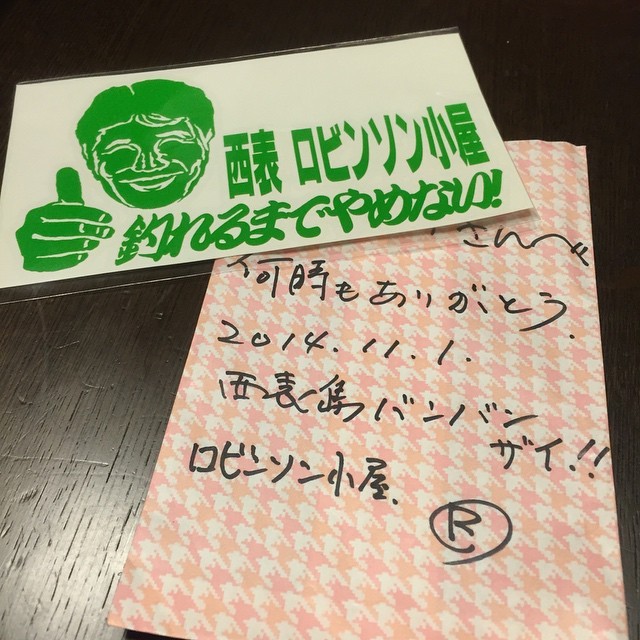 西表 ロビンソン小屋
釣れるまでやめない!
さんへ
何時もありがとう.
2014.11.1.
西表島バンバン
ザイ!!
ロビンソン小屋.
R